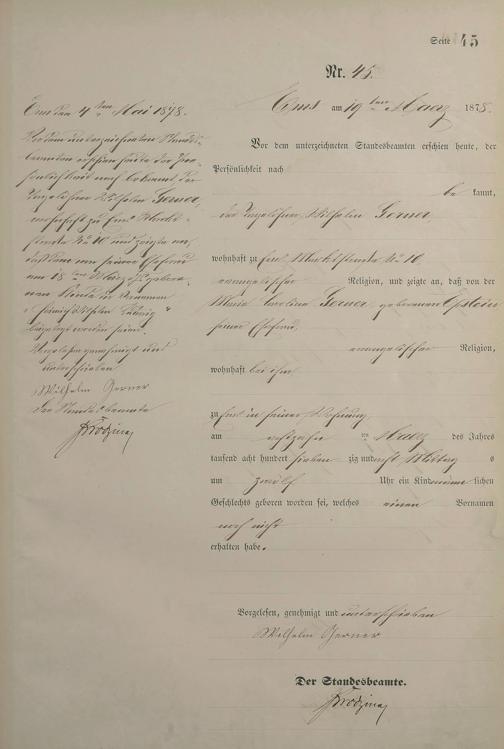 Seite 45
Nr. 45.
Ems den 4ten Mai 1878.
Vor dem unterzeichneten Standes-
beamten erschien heute der Per-
sönlichkeit nach bekannt, der
Taglöhner Wilhelm Gerner,
wohnhaft zu Ems Markt-
straße No 10 und zeigte an,
daß dem von seiner Ehefrau
am 18ten März gebore-
nen Kinde die Vornamen
Wilhelm Ludwig
beigelegt worden seien.
Vorgelesen genehmigt und
unterschrieben
Wilhelm Gerner
Der Standesbeamte
Ems am 19ten Maerz 1878.
Vor dem unterzeichneten Standesbeamten erschien heute, der
Persönlichkeit nach
be kannt,
der Taglöhner Wilhelm Gerner
wohnhaft zu Ems, Marktstraße No 10
evangelischer Religion, und zeigte an, daß von der
Maria Carolina Gerner, geborenen Epstein
seiner Ehefrau,
evangelischer Religion,
wohnhaft bei ihm
zu Ems in seiner Wohnung
am achtzehn ten Maerz des Jahres
tausend acht hundert sieben zig und acht Mittag s
um zwölf Uhr ein Kind männ lichen
Geschlechts geboren worden sei, welches einen Vornamen
noch nicht
erhalten habe.
Vorgelesen, genehmigt und unterschrieben
Wilhelm Gerner
Der Standesbeamte.